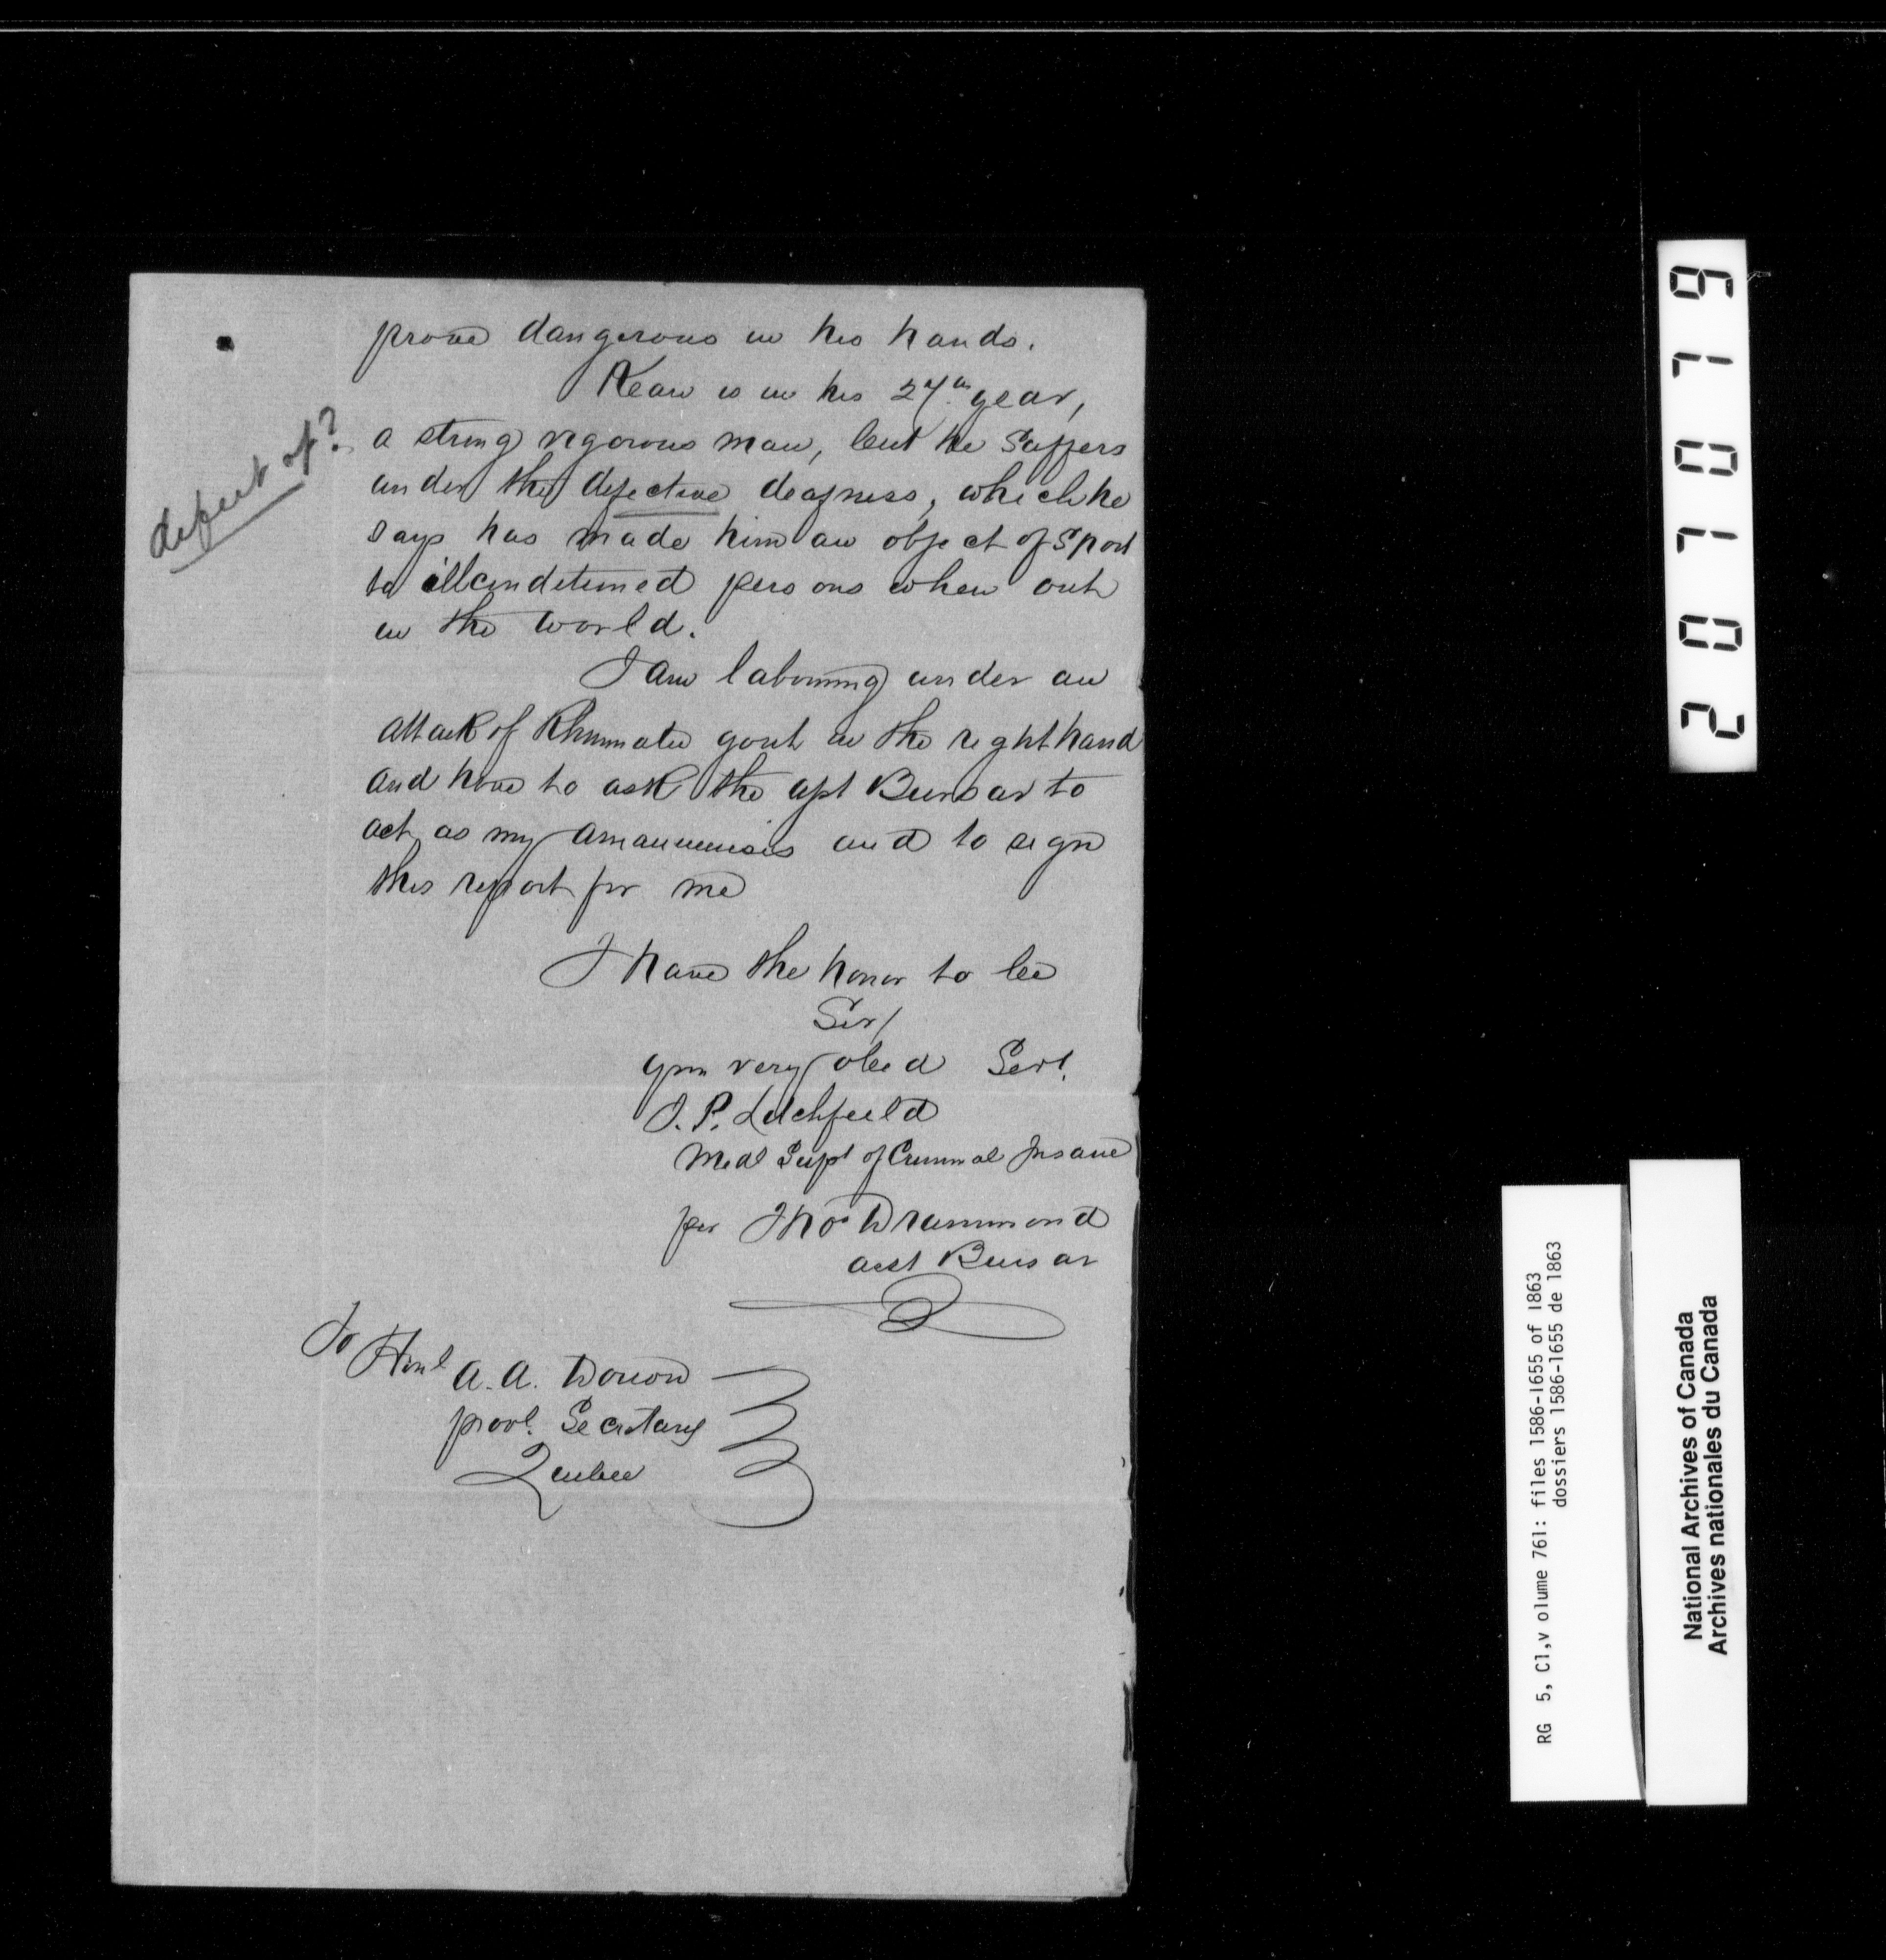 prove dangerous in his hands.
Kean is in his 27th year,
a strong vigorous man, but he Suffers
under the defective deafness, which he
says has made him an object of Sport
to illconditioned persons when out
in the world.
defect of?
I am labouring under an
attack of Rhumatic gout in the right hand
and have to ask the asst Bursar to
act as my amanuensis and to sign
this report for me
I have the honor to be
Sir/
your very obed Servt.
J. P. Litchfield
Medl Supt of Criminal Insane
per Thos Drummond
asst Bursar
To Honl A. A. Dorion
provl. Secretary
Quebec
207079
RG 5, C1,v olume 761: files 1586-1655 of 1863
dossiers 1586-1655 de 1863
National Archives of Canada
Archives nationales du Canada